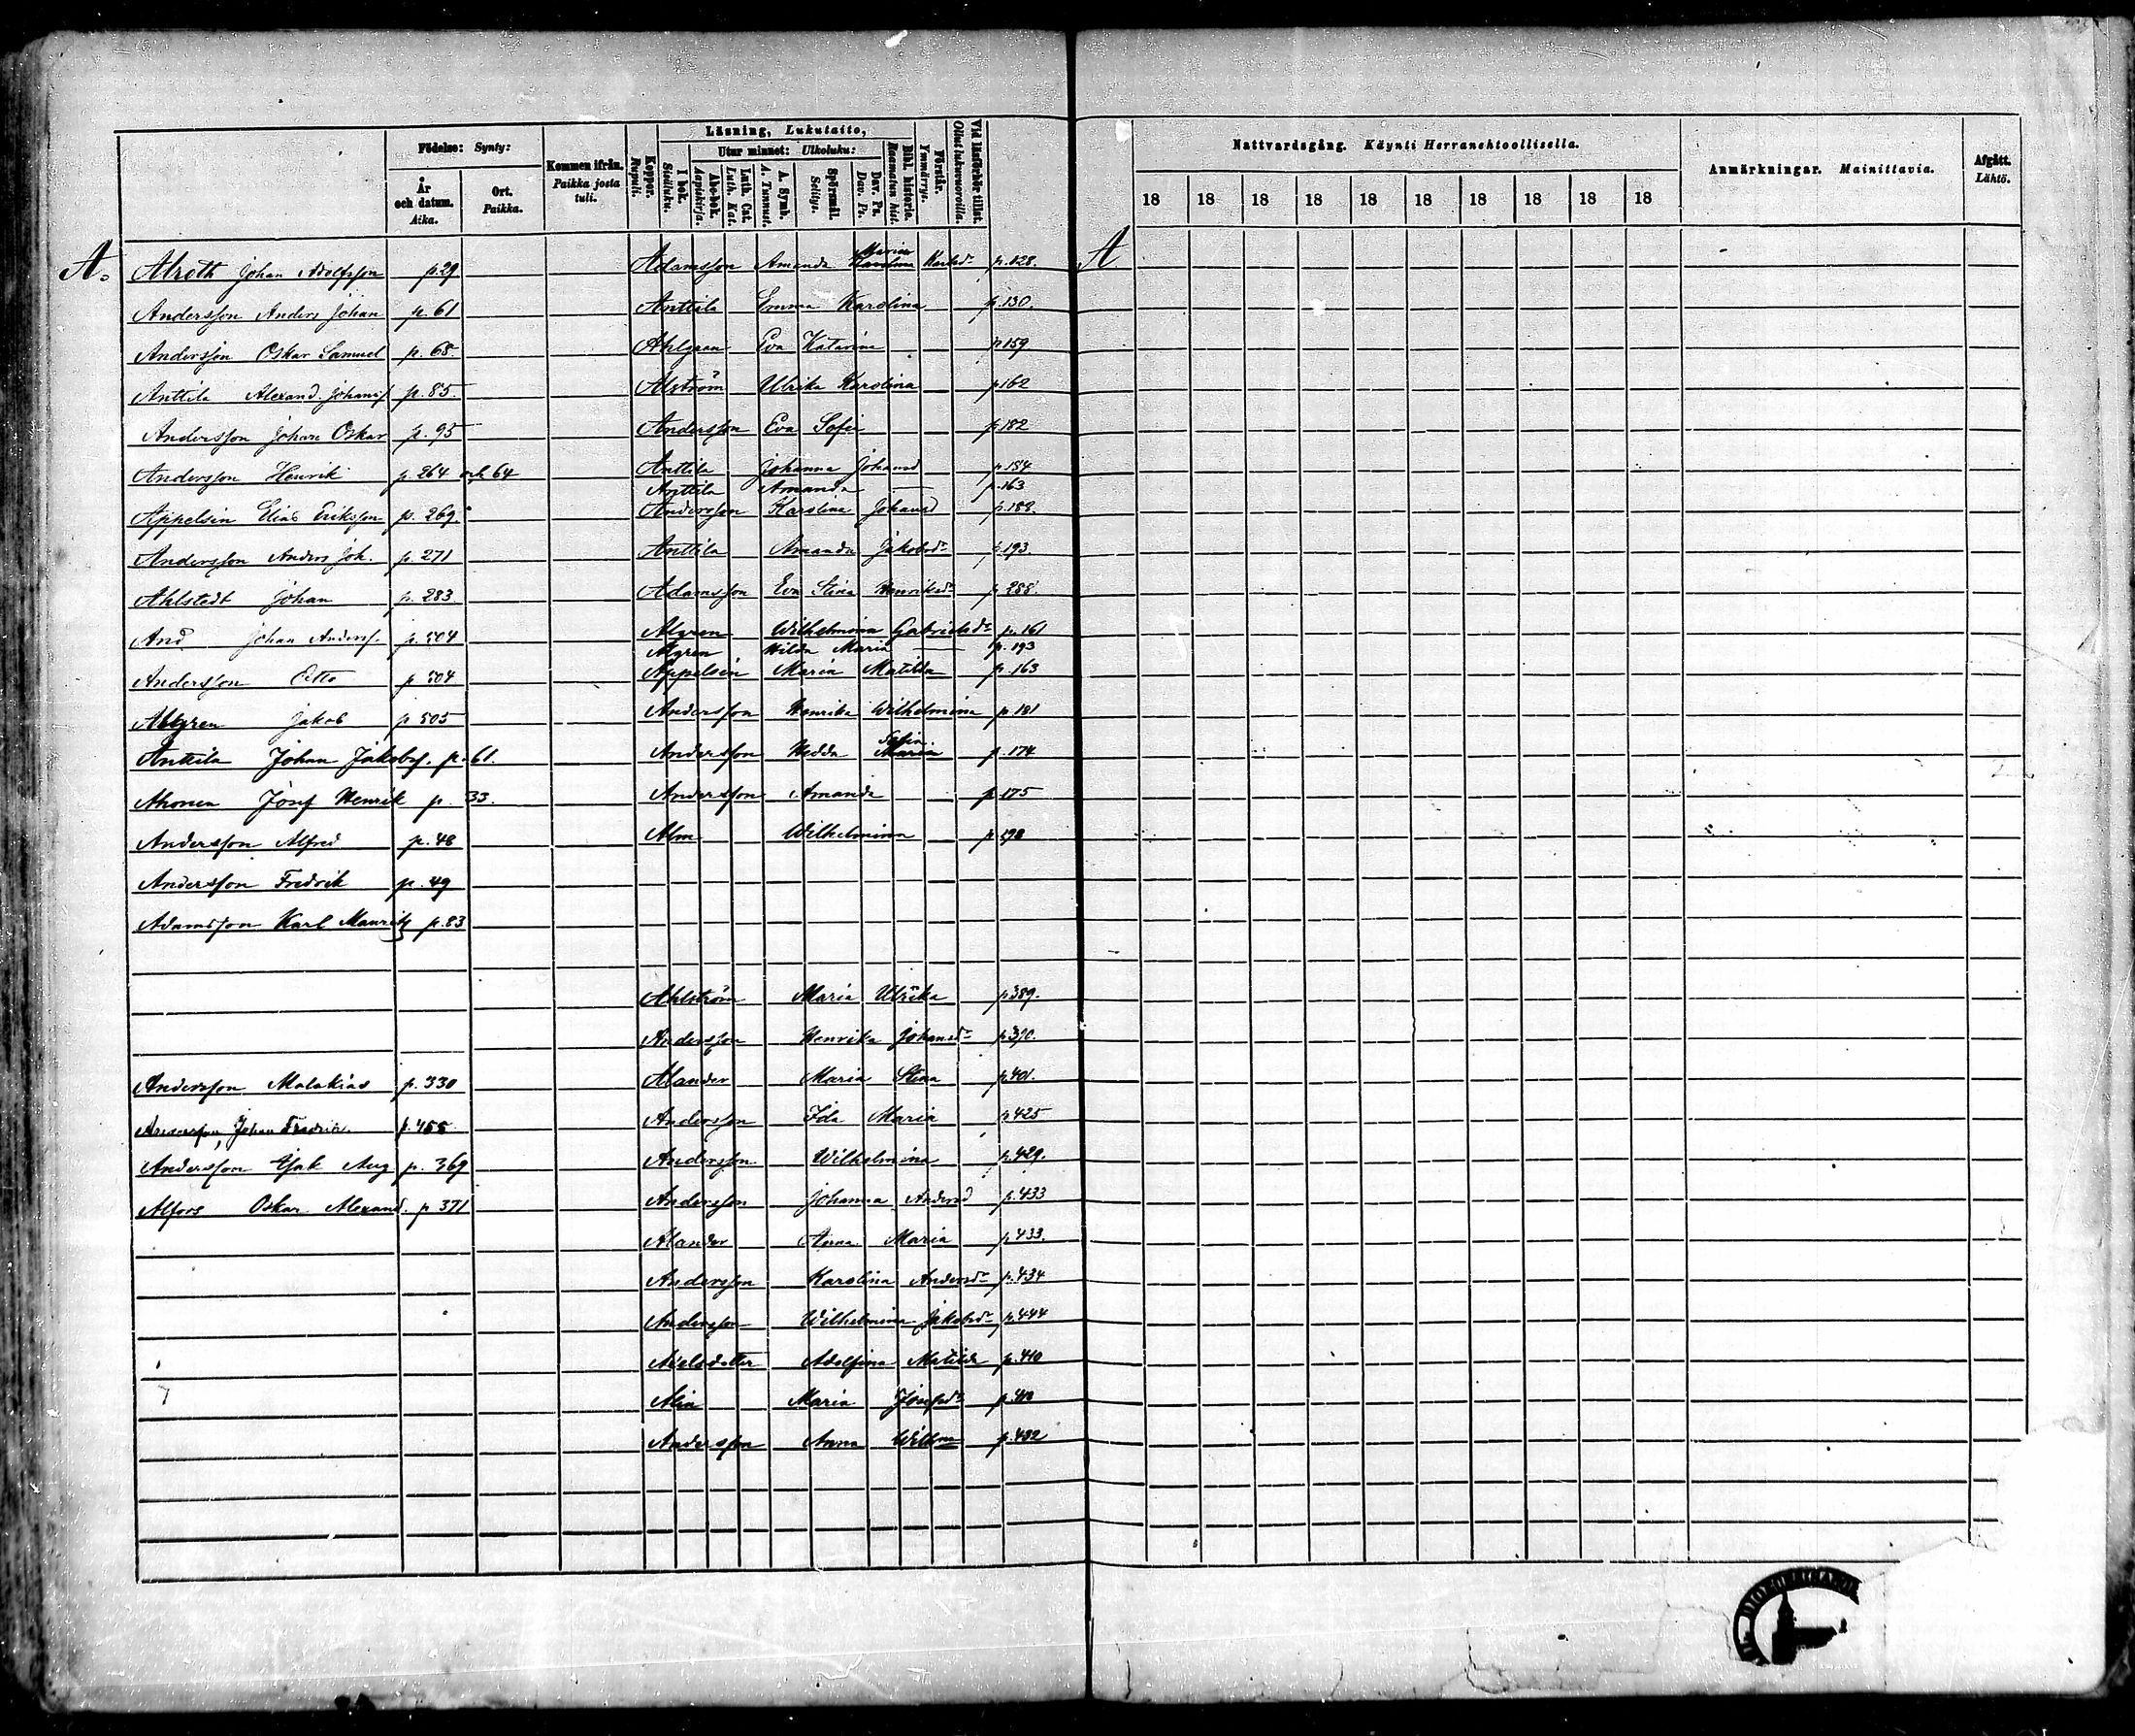 Födelse: Synty:
År och datum. Aika.
Ort. Paikka.
Kommen ifrån. Paikka josta tuli.
Koppor. Rupuli.
Läsning, Lukutaito,
I bok. Sisäluku.
Utur minnet: Ulkoluku:
Abc-bok. Aapiskirja.
Luth. Cat. Luth. Kat.
A. Symb. A. Tunnust.
Spörsmål. Selitys.
Dav. Ps. Dav. Ps.
Bibl. historia. Raamatun hist.
Förstår. Ymmärrys.
Vid läsförhör tillst. Ollut lukuvuoroilla.
A.
Alroth Johan Adolfsson p. 29
Andersson Anders Johan p. 61
Andersson Oskar Samuel p. 68
Anttila Alexand. Johans p. 85
Andersson Johan Oskar p. 95
Andersson Henrik p. 264 och 64
Appelsin Elias Eriksson p. 269.
Andersson Anders Joh. p. 271
Ahlstedt Johan p. 283
Johan p. 504
Andersson Otto p 504
Algren Jakob p 505
Anttila Johan Jakobss. p. 61.
Ahonen Josef Henrik p. 33.
Andersson Alfred p. 48
Andersson Fredrik p. 49
Adamsson Karl Mauritz p. 83
Andersson Malakias p. 330
Andersson, Johan Fredrik. p. 455
Andersson Isak Aug p. 369
Alfors Oskar Alexand. p 371
Adamsson Amanda Maria Karolina Karlsdr p. 128.
Anttila Emma Karolina p. 130.
Ahlgren Eva Katarina p 159
Alström Ulrika Karolina p 162
Andersson Eva Sofia p 182
Anttila Johanna Johansd p. 184
Anttila Amanda — p. 163
Andersson Karolina Johansd p. 188.
Anttila Amanda Jakobsdr p. 193
Adamsson Eva Stina Henriksdr p. 288.
Algren Wilhelmina Gabrielsdr p. 161
Algren Hilda Maria — p. 193
Appelsin Maria Matilda p. 163
Andersson Henrika Wilhelmina p 181
Andersson Hedda Sofia Maria p. 174
Andersson Amanda p 175
Alm Wilhelmina p.
Ahlström Maria Ulrika p 389.
Andersson Henrika Johansdr p 390.
Alander Maria Stina p 401.
Andersson Ida Maria p 425
Andersson Wilhelmina p. 429.
Andersson Johanna Andersd p. 433
Alander Anna Maria p 433.
Andersson Karolina Andersdr p. 434
Andersson Wilhelmina Jakobsdr p. 444
Axelsdotter Adolfina Matilda p. 440
Alin Maria Josefsdr p.
Andersson Anna Wilhna p. 432
A
Nattvardsgång. Käynti Herranehtoollisella.
18 18 18 18 18 18 18 18 18 18
Anmärkningar. Mainittavia.
Afgått. Lähtö.